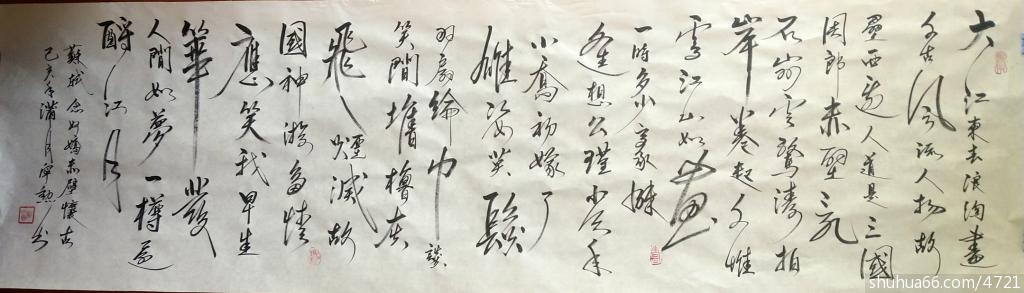 大江東去浪淘盡
千古風流人物故
壘西邊人道是三國
周郎赤壁亂
石崩雲驚濤拍
岸卷起千堆
雪江山如畫
一時多少豪傑
遙想公瑾當年
小喬初嫁了
雄姿英髮
羽扇綸巾談
笑間檣櫓灰
飛煙滅故
國神遊多情
應笑我早生
華發
人間如夢一樽還
酹江月
蘇軾念奴嬌赤壁懷古
己亥年月書
shuhua66.com/4721